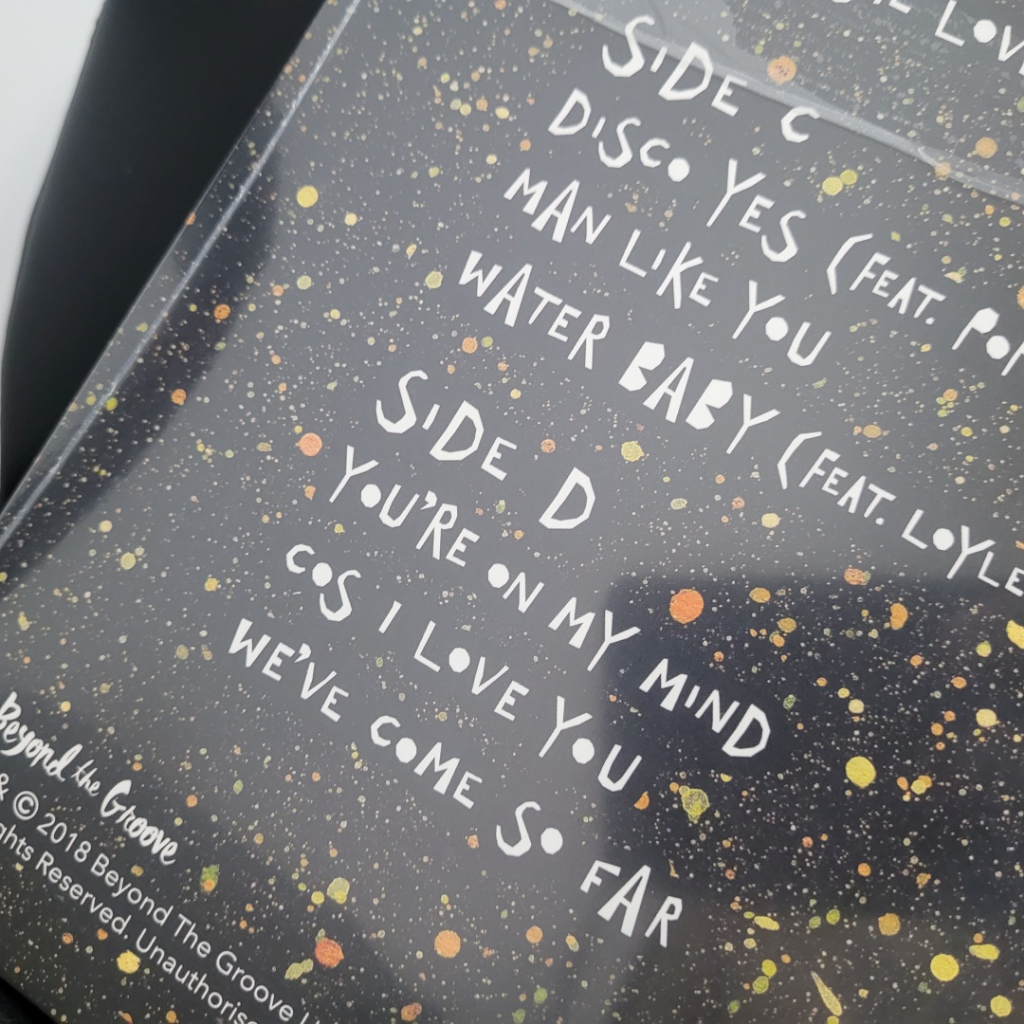 LOV
SIDE C
DISCO YES (FEAT. POP
MAN LIKE YOU
WATER BABY (FEAT. LOYLE
SIDE D
YOU'RE ON MY MIND
COS I LOVE YOU
WE'VE COME SO FAR
Beyond the Groove
& © 2018 Beyond The Groove
ghts Reserved. Unauthoris